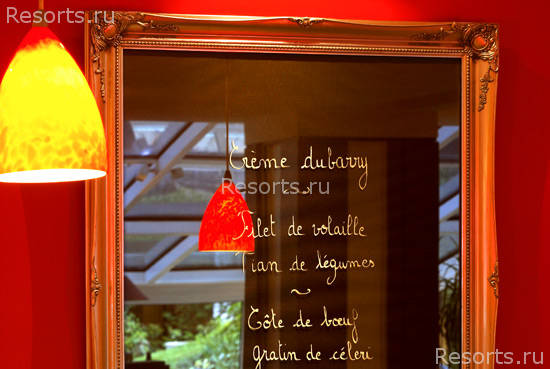 Resorts.ru
Resorts.ru
Crème dubarry
Resorts.ru
Filet de volaille
Tian de légumes
~
Côte de bœuf
gratin de céleri
Resorts.ru
Resorts.ru